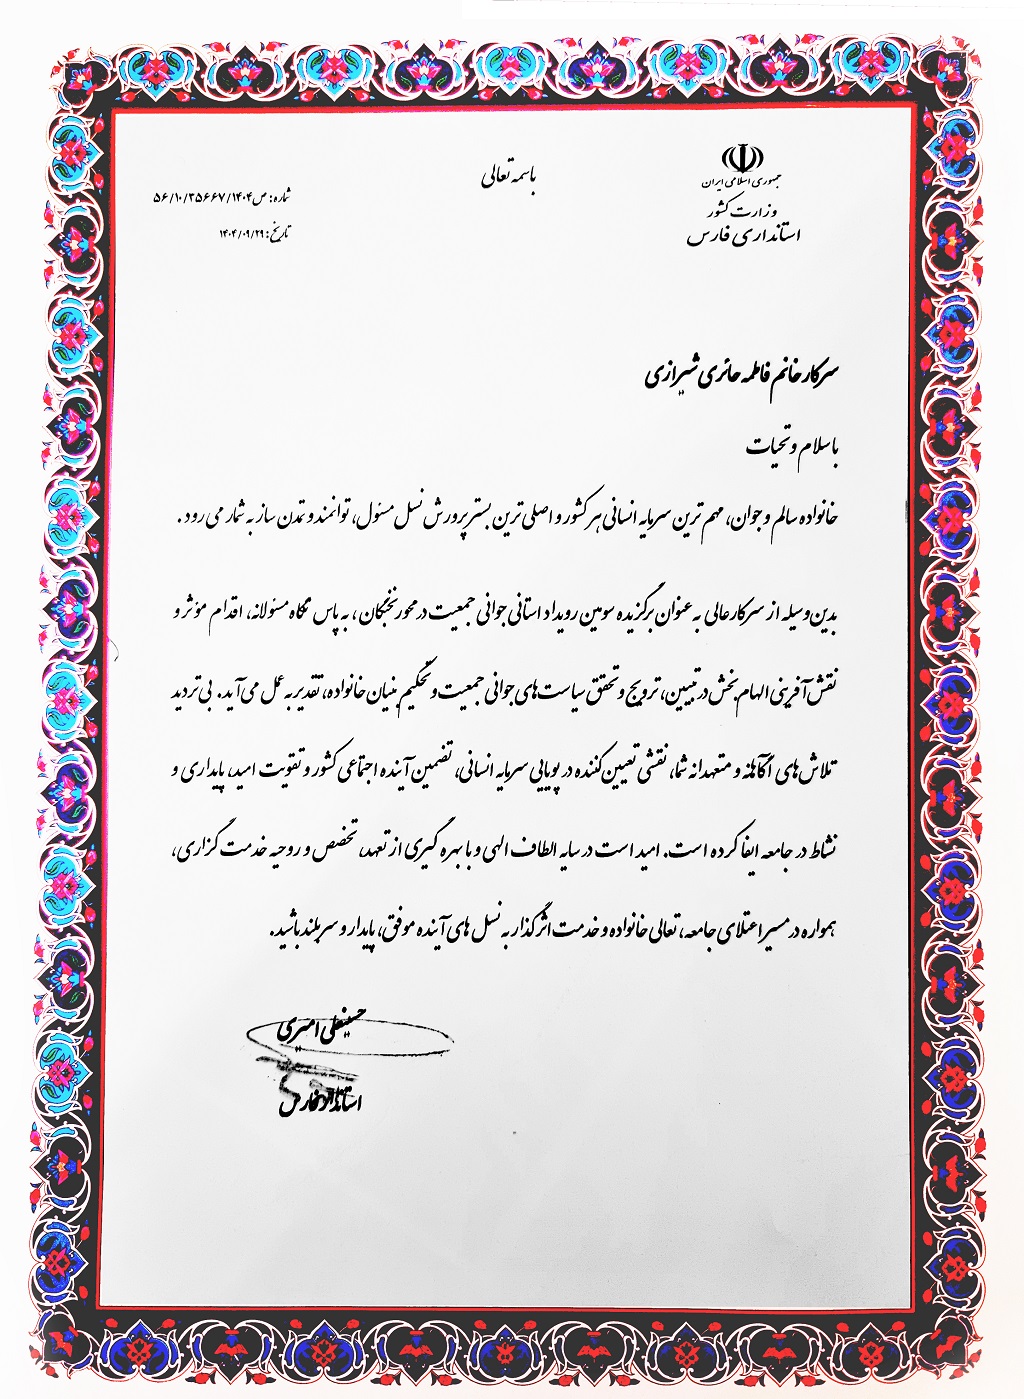 باسمه تعالی
جمهوری اسلامی ایران
وزارت کشور
استانداری فارس
شماره: ص۵۶/۱۰/۳۵۶۶۷/۱۴۰۴
تاریخ: ۱۴۰۴/۰۹/۲۹
سرکار خانم فاطمه حائری شیرازی
با سلام و تحیات
خانواده سالم و جوان، مهم ترین سرمایه انسانی هر کشور و اصلی ترین بستر پرورش نسل مسئول، توانمند و تمدن ساز به شمار می رود.
بدین وسیله از سرکار عالی به عنوان برگزیده سومین رویداد استانی جوانی جمعیت در محور نخبگان، به پاس نگاه مسئولانه، اقدام مؤثر و
نقش آفرینی الهام بخش در تبیین، ترویج و تحقق سیاست های جوانی جمعیت و تحکیم بنیان خانواده، تقدیر به عمل می آید. بی تردید
تلاش های آگاهانه و متعهدانه شما، نقشی تعیین کننده در پویایی سرمایه انسانی، تضمین آینده اجتماعی کشور و تقویت امید، پایداری و
نشاط در جامعه ایفا کرده است. امید است در سایه الطاف الهی و با بهره گیری از تعهد، تخصص و روحیه خدمت گزاری،
همواره در مسیر اعتلای جامعه، تعالی خانواده و خدمت اثرگذار به نسل های آینده موفق، پایدار و سربلند باشید.
حسینعلی امیری
استاندار فارس